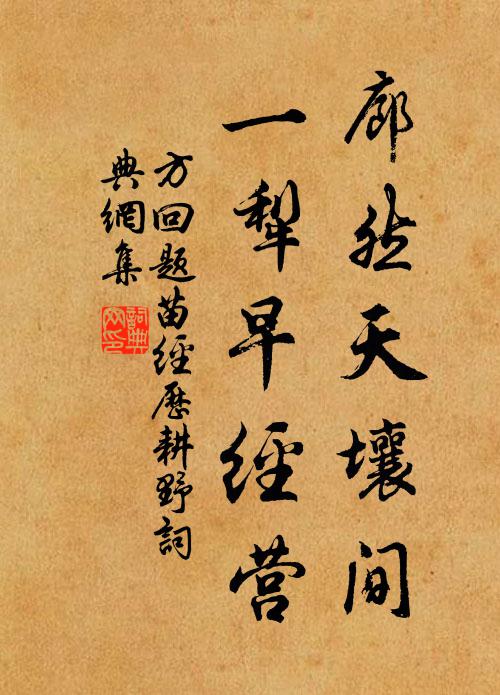 廊然天壤间
一犁早经营
方回题苗经历耕野詞
典網集
詞典
网印